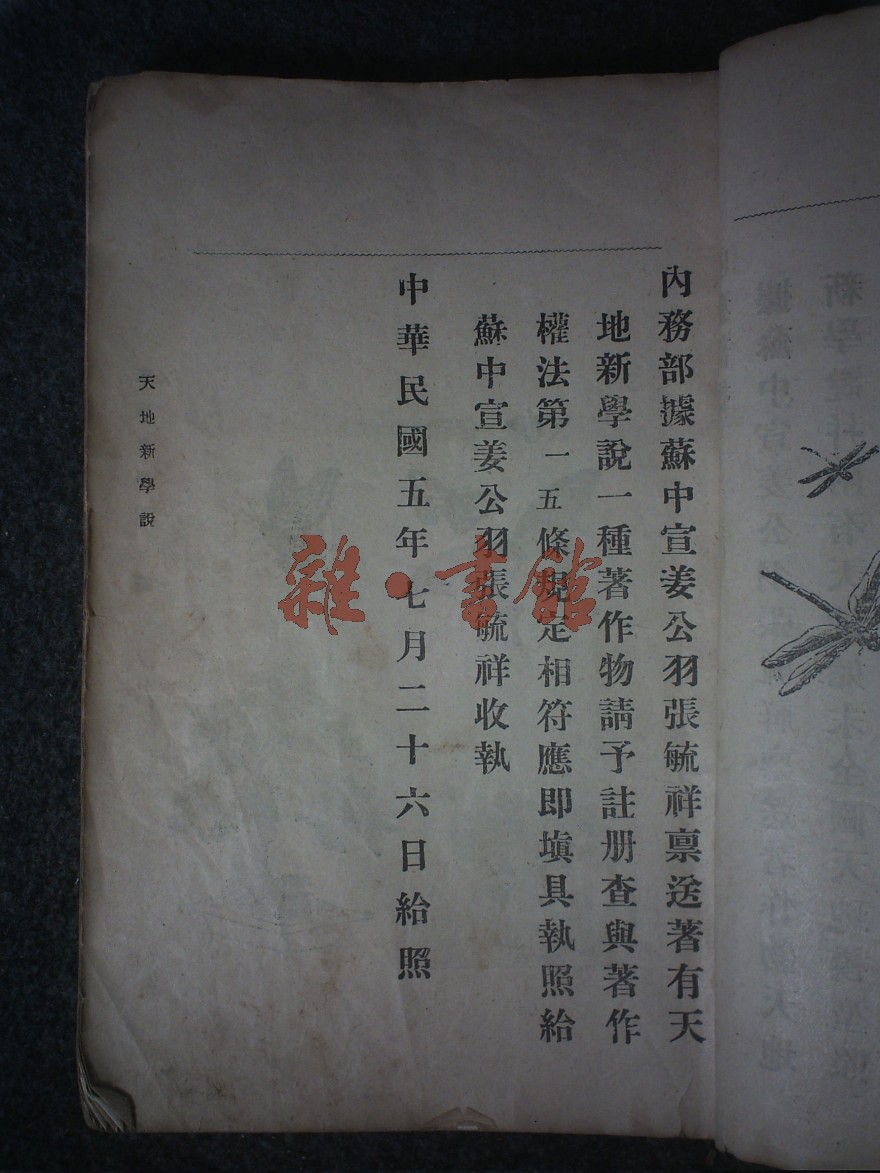 內務部據蘇中宣姜公羽張毓祥禀送著有天
地新學說一種著作物請予註册查與著作
權法第一五條規定相符應即塡具執照給
蘇中宣姜公羽張毓祥收執
中華民國五年七月二十六日給照
天地新學說
雜·書館